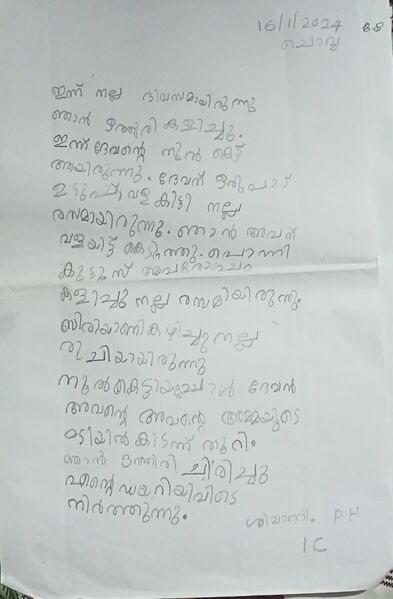 16/1/2024
ചൊവ്വ
ഇന്ന് നല്ല ദിവസമായിരുന്നു
ഞാൻ ഒത്തിരി കളിച്ചു.
ഇന്ന് ദേവന്റെ നൂൽ കെട്ട്
ആയിരുന്നു. ദേവന് ഒരുപാട്
ഉടുപ്പും വള കിട്ടി നല്ല
രസമായിരുന്നു. ഞാൻ അവന്
വളയിട്ട് കൊടുത്തു. പൊന്നി
കുട്ടൂസ്
കളിച്ചു നല്ല രസമിയിരുന്നു.
ബിരിയാണികഴിച്ചു നല്ല
രുചിയായിരുന്നു
നൂൽകെട്ടിയപ്പോൾ ദേവൻ
അവന്റെ അവന്റെ അമ്മയുടെ
മടിയിൽ കിടന്ന് തൂറി.
ഞാൻ ഒത്തിരി ചിരിച്ചു
എന്റെ ഡയറിയിവിടെ
നിർത്തുന്നു.
ശിവാനി. P H
1C